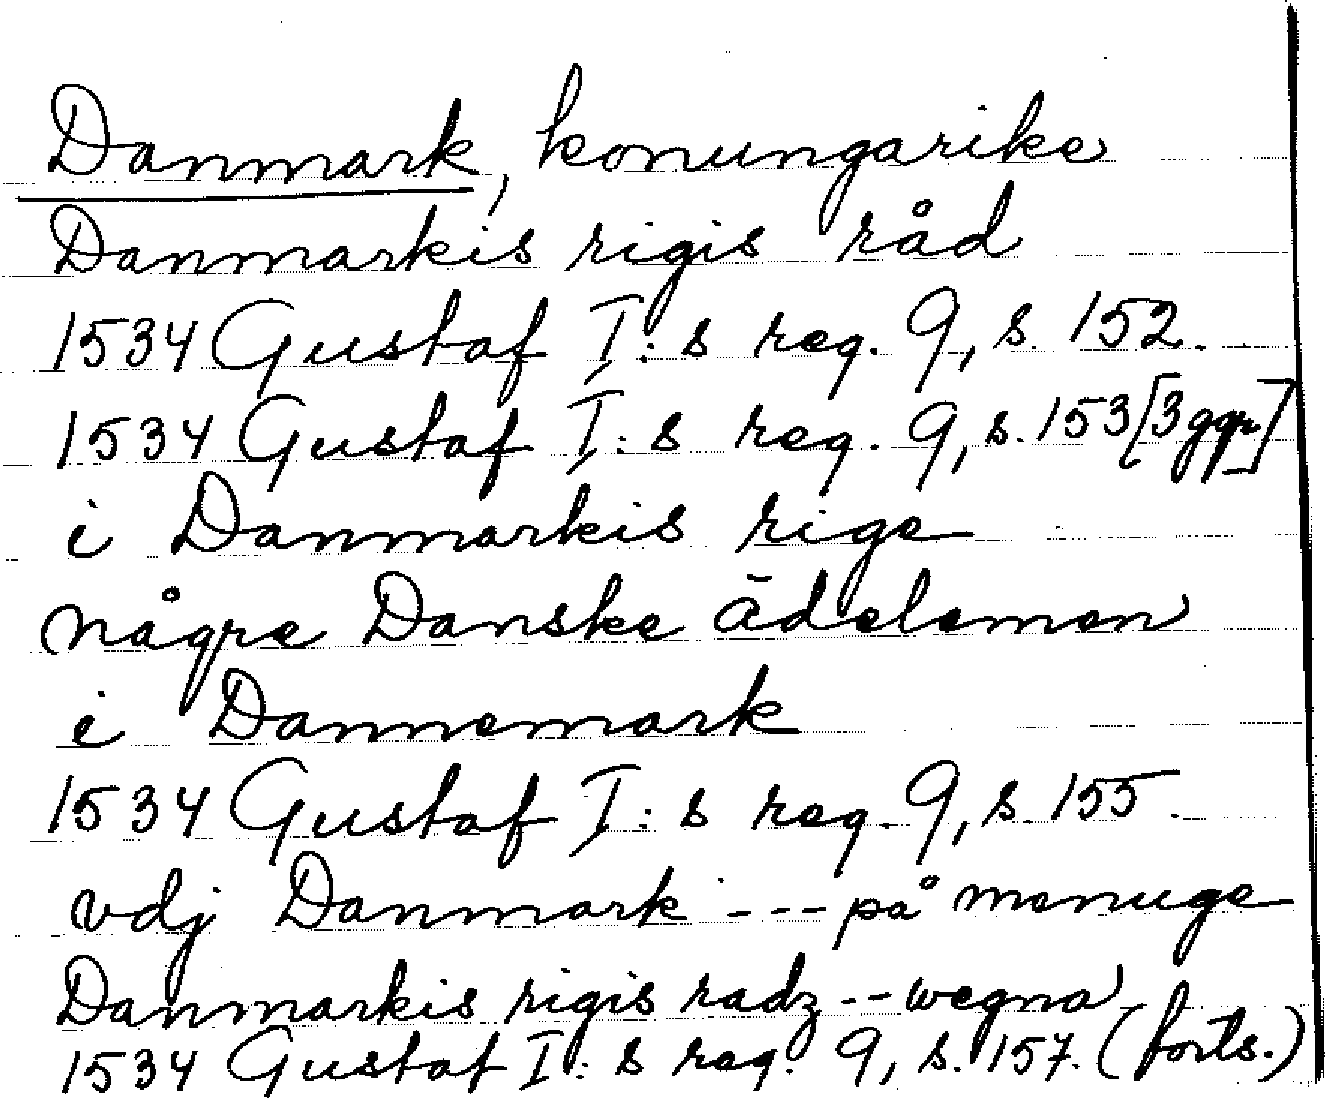 Danmark, konungarike
Danmarkis rigis råd
1534 Gustaf I:s reg. 9, s. 152.
1534 Gustaf I:s reg. 9, s. 153 [3 ggr]
i Danmarkis rige
någre Danske ädelemen
i Dannemark
1534 Gustaf I:s reg. 9, s. 155.
vdj Danmark --- på menuge
Danmarkis rigis radz -- wegna
1534 Gustaf I:s reg. 9, s. 157. (forts.)